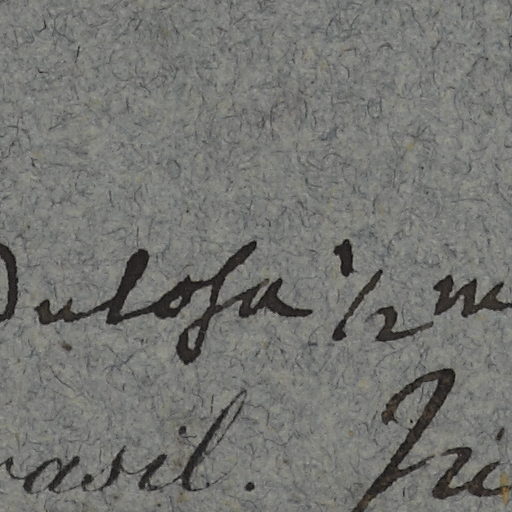 dulosa ½ m
rasil. Fri